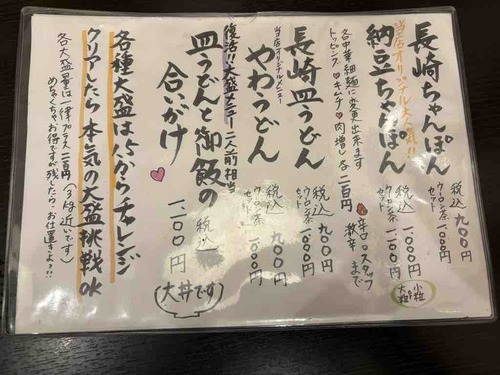 長崎ちゃんぽん
税込 九〇〇円
ウーロン茶セット 一、〇〇〇円
当店オリジナル大人気!!
納豆ちゃんぽん
税込 一、〇〇〇円
ウーロン茶セット
大粒 小粒
各中華細麺に変更出来ます
トッピング♡キムチ♡肉増し各二百円
辛子 スタッフまで
長崎皿うどん
税込 九〇〇円
ウーロン茶セット 一、〇〇〇円
当店オリジナルメニュー
やわうどん
税込 九〇〇円
ウーロン茶セット 一、〇〇〇円
復活!!大盛メニュー二人前相当
皿うどんと御飯の
合いがけ
税込
一、一〇〇円
(大丼です)
各種大盛は1.5からチャレンジ
クリアしたら本気の大盛挑戦OK
各大盛量は一律プラス二百円(3倍近いです)
めちゃくちゃお得ですが残したら、お仕置きよ!!